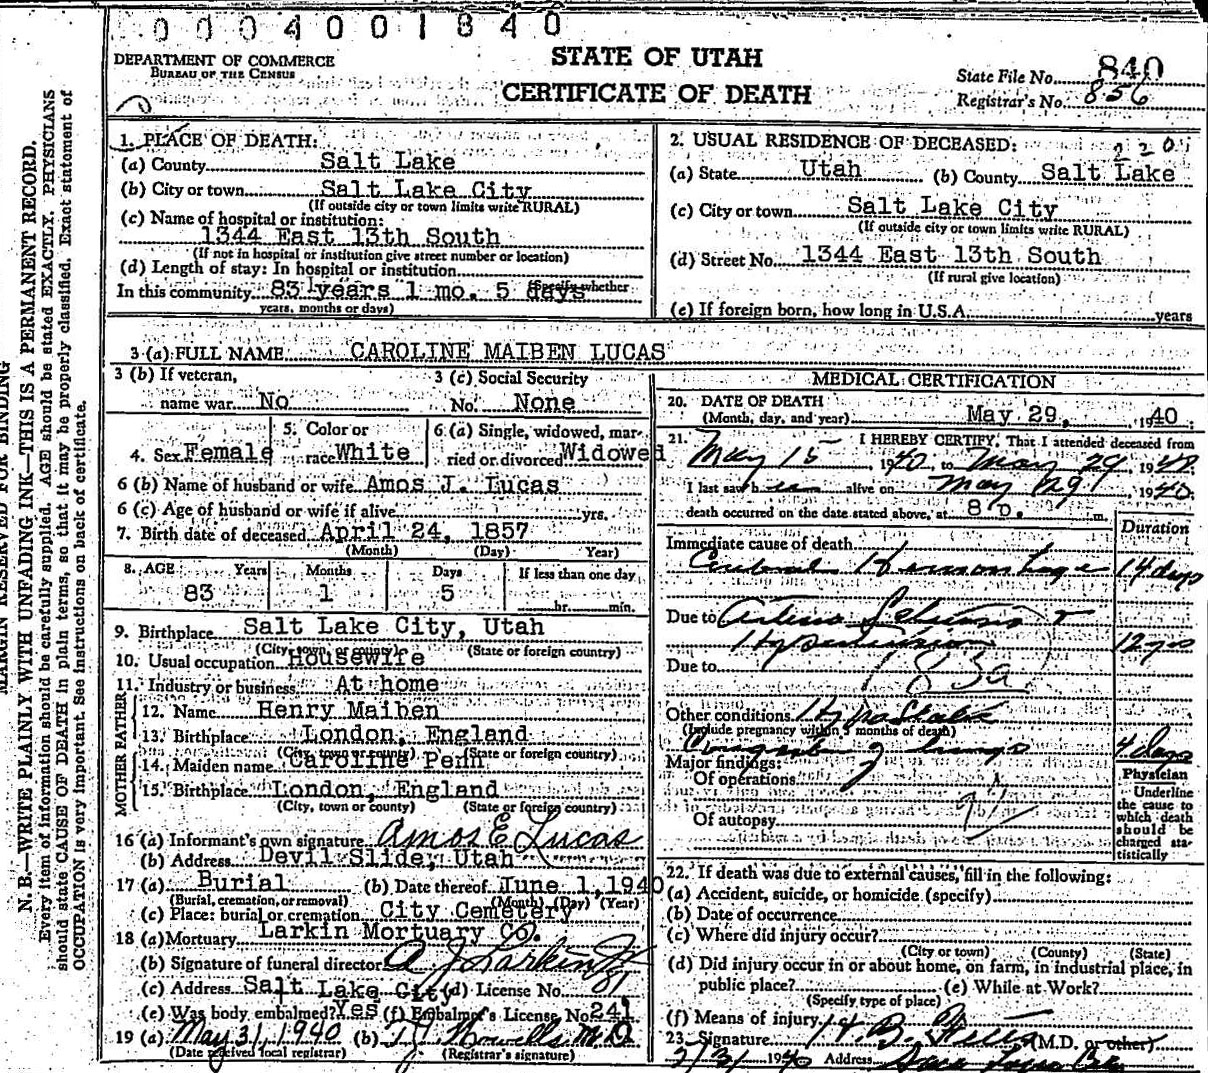 0004001840
DEPARTMENT OF COMMERCE
BUREAU OF THE CENSUS
STATE OF UTAH
CERTIFICATE OF DEATH
State File No. 840
Registrar's No. 856
MARGIN RESERVED FOR BINDING
N. B.—WRITE PLAINLY WITH UNFADING INK—THIS IS A PERMANENT RECORD.
Every item of information should be carefully supplied. AGE should be stated EXACTLY. PHYSICIANS
should state CAUSE OF DEATH in plain terms, so that it may be properly classified. Exact statement of
OCCUPATION is very important. See instructions on back of certificate.
1. PLACE OF DEATH:
(a) County Salt Lake
(b) City or town Salt Lake City
(If outside city or town limits write RURAL)
(c) Name of hospital or institution:
1344 East 13th South
(If not in hospital or institution give street number or location)
(d) Length of stay: In hospital or institution
In this community 83 years 1 mo. 5 days (Specify whether
years, months or days)
2. USUAL RESIDENCE OF DECEASED:
220
(a) State Utah (b) County Salt Lake
(c) City or town Salt Lake City
(If outside city or town limits write RURAL)
(d) Street No. 1344 East 13th South
(If rural give location)
(e) If foreign born, how long in U.S.A. years
3 (a) FULL NAME CAROLINE MAIBEN LUCAS
3 (b) If veteran,
name war No
3 (c) Social Security
No. None
4. Sex Female
5. Color or
race White
6 (a) Single, widowed, mar-
ried or divorced Widowed
6 (b) Name of husband or wife Amos J. Lucas
6 (c) Age of husband or wife if alive yrs.
7. Birth date of deceased April 24, 1857
(Month) (Day) Year)
8. AGE Years Months Days If less than one day
83 1 5 hr. min.
9. Birthplace Salt Lake City, Utah
(City, town, or county) (State or foreign country)
10. Usual occupation Housewife
11. Industry or business At home
FATHER
12. Name Henry Maiben
13. Birthplace London, England
(City, town or county) (State or foreign country)
MOTHER
14. Maiden name Caroline Penn
15. Birthplace London, England
(City, town or county) (State or foreign country)
16 (a) Informant's own signature Amos E Lucas
(b) Address Devil Slide, Utah
17 (a) Burial (b) Date thereof June 1, 1940
(Burial, cremation, or removal) (Month) (Day) (Year)
(c) Place: burial or cremation City Cemetery
18 (a) Mortuary Larkin Mortuary Co.
(b) Signature of funeral director A J Larkin Jr
(c) Address Salt Lake City (d) License No. 81
(e) Was body embalmed? Yes (f) Embalmer's License No. 241
19 (a) May 31, 1940 (b) T J Howells M.D.
(Date received local registrar) (Registrar's signature)
MEDICAL CERTIFICATION
20. DATE OF DEATH
(Month, day, and year) May 29, 1940
21. I HEREBY CERTIFY, That I attended deceased from
May 15, 1940, to May 29, 1940
I last saw her alive on May 29, 1940
death occurred on the date stated above, at 8 p. m.
Duration
Immediate cause of death
Cerebral Hemorrhage 14 days
Due to Arterio Sclerosis &
Hypertension 12 yrs
Due to 83a
Other conditions Hypostatic
(Include pregnancy within 3 months of death)
Congestion of lungs 4 days
Major findings:
Of operations
Of autopsy
Physician
Underline
the cause to
which death
should be
charged sta-
tistically
22. If death was due to external causes, fill in the following:
(a) Accident, suicide, or homicide (specify)
(b) Date of occurrence
(c) Where did injury occur?
(City or town) (County) (State)
(d) Did injury occur in or about home, on farm, in industrial place, in
public place? (e) While at Work?
(Specify type of place)
(f) Means of injury
23. Signature H. B. (M.D. or other)
1940 Address